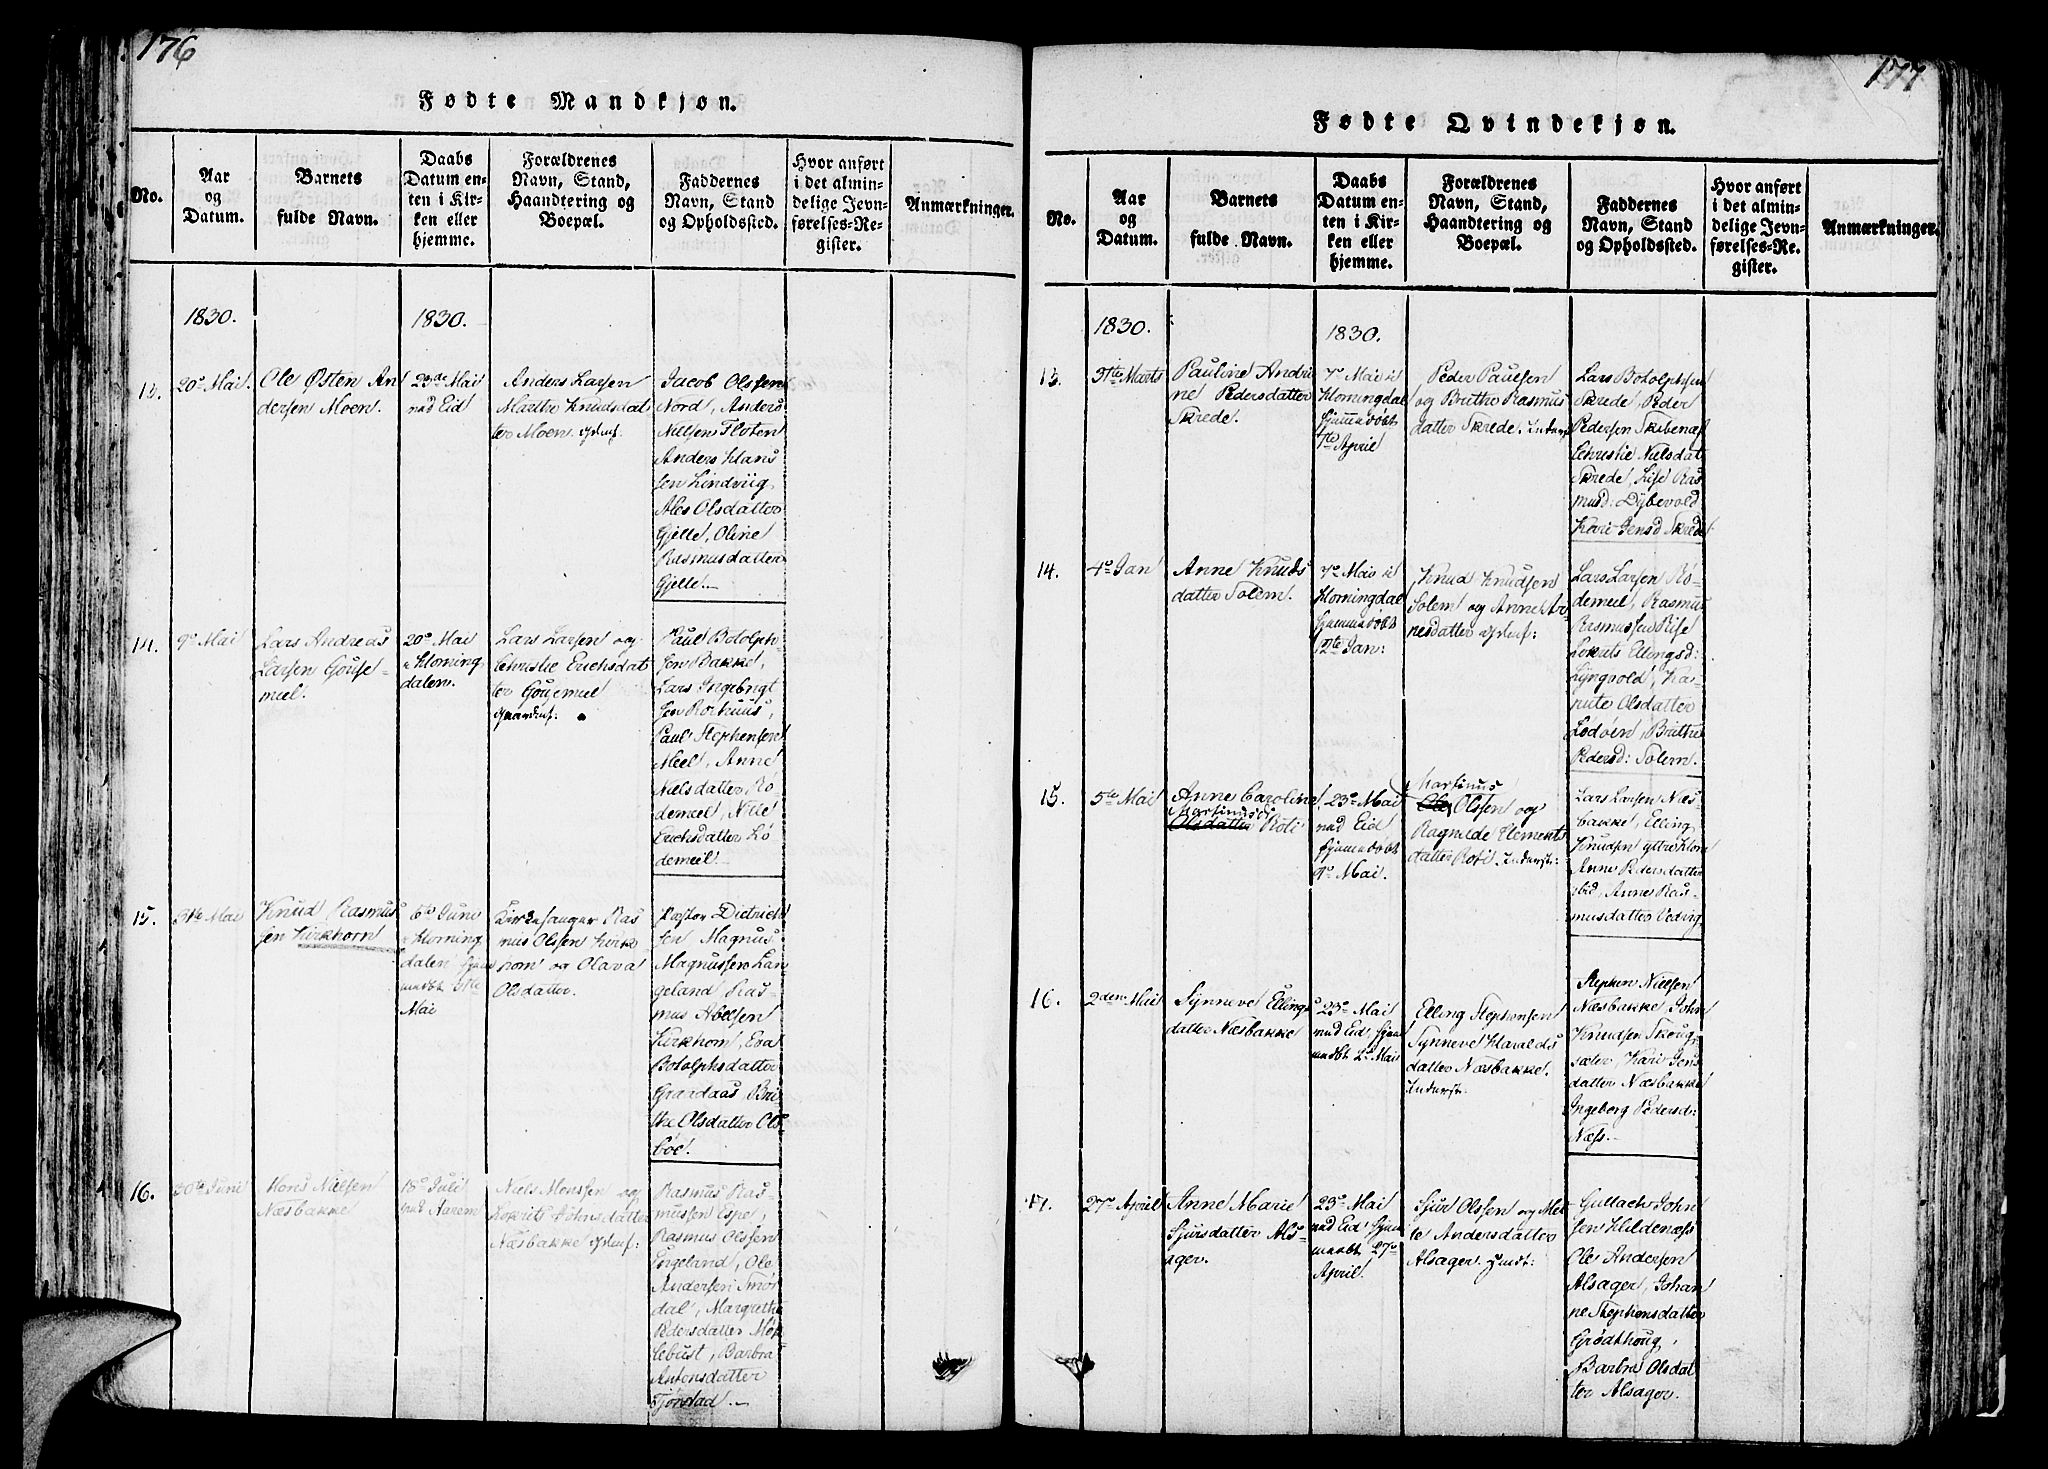 176
Fødte Mandkjøn.
No.
Aar
og
Datum.
Barnets
fulde Navn.
Daabs
Datum en-
ten i Kir-
ken eller
hjemme.
Forældrenes
Navn, Stand,
Haandtering og
Boepæl.
Faddernes
Navn, Stand
og Opholdssted.
Hvor anført
i det almin-
delige Jevn-
førelses-Re-
gister.
Anmærkninger.
1830.
1830.
13.
20de Mai
Ole Østen An
dersen Moen.
23de Mai
ved Eid
Anders Larsen
Marthe Knudsdat
ter Moen.
Jacob Olssen
Nord, Anders
Nilssen Floten
Anders Hans
sen Lindviig,
Ales Olsdatter
Gjelle, Oline
Rasmusdatter
Gjelle.
14.
9de Mai
Lars Andreas
Larsen Gouse-
meel.
20de Mai
i Horning
dalen.
Lars Larsen og
Christie Erichsdat
ter Gousemeel
Paul Botolph
sen Bakke,
Lars Ingebrigt
sen Rorhuus,
Paul Stephensen
Meel, Anne
Nielsdatter Rø-
demeel, Nille
Erichsdatter Lø
demeel.
15.
Mai
Knud Rasmus
sen Kirkhorn
6te Juni
i Horning
dalen
Mai
Kirkesanger Ras
mus Olssen Kirk
horn og Olava
Olsdatter.
Pastor Dietrich
sen Magnus
Magnussen Lan-
geland Ras-
mus Abelsen
Kirkhorn, Eva
Botolphsdatter
Graadaas, Bri
the Olsdatter Ols
bøe.
16.
Juni
Mons Nielsen
Næsbakke
18de Juli
ved Aarem
Niels Monssen og
Lokrits Johnsdatter
Næsbakke
Rasmus Ras-
mussen Espe,
Rasmus Olssen
Engeland, Ole
Andersen Smør
dal, Margrethe
Pedersdatter Møk
lebust, Barbra
Antonsdatter
Tjørstad.
177
Fødte Qvindekjøn.
No.
Aar
og
Datum.
Barnets
fulde Navn.
Daabs
Datum en-
ten i Kir-
ken eller
hjemme.
Forældrenes
Navn, Stand,
Haandtering og
Boepæl.
Faddernes
Navn, Stand
og Opholdssted.
Hvor anført
i det almin-
delige Jevn-
førelses-Re-
gister.
Anmærkninger.
1830.
1830.
13.
Marts
Pauline Andri
ne Pedersdatter
Skrede.
7de Mai i
Horningdal
hjemmedøbt
April
Peder Paulsen
og Brithe Rasmus
datter Skrede. Inderst
Lars Botolphsen
Skrede, Peder
Pedersen Skibenæs
Christie Nielsdat
Skrede, Lise Ras
musd: Dybevold
Kari Jensd Skrede
14.
4de Jan
Anne Knuds
datter Solem.
7de Mai i
Horningdal
hjemmedøbt
12te Jan:
Knud Knudsen
Solem og Anne Ar
nesdatter
Lars Larsen Rø-
demeel, Rasmus
Rasmussen Rise
Lokrits Ellingsd:
Lyngvold, Kar-
nute Olsdatter
Lødøen, Brithe
Pedersd: Solem.
15.
5te Mai
Anne Caroline
Martinusd
Olsdatter Roti
23de Mai
ved Eid
hjemmedøbt
9de Mai.
Martinus
Ole Olsen og
Ragnilde Clements
datter Roti. Inderst:
Lars Larsen Næs
bakke, Elling
Knudsen yttre Horn
Anne Pedersdatter
ibid, Anne Ras-
musdatter Veding.
16.
2den Mai
Synneve Elling-
datter Næsbakke
23de Mai
ved Eid, hjem
medøbt 2de Mai
Elling Stephensen
Synneve Haralds
datter Næsbakke.
Inderst.
Stephen Nielsen
Næsbakke, John
Knudsen Skoug
sæter, Kari Jens
datter Næsbakke
Ingeborg Pedersd:
Næss.
17.
27de April
Anne Marie
Sjursdatter Als
ager.
23de Mai
ved Eid hjem
medøbt 27de
April.
Sjur Olssen og Mal
le Andersdatter
Alsager.
Gullach John
sen Hildenæss
Ole Andersen
Alsager, Johan
ne Stephensdatter
Grødthoug,
Barbra Olsdat
ter Alsager.